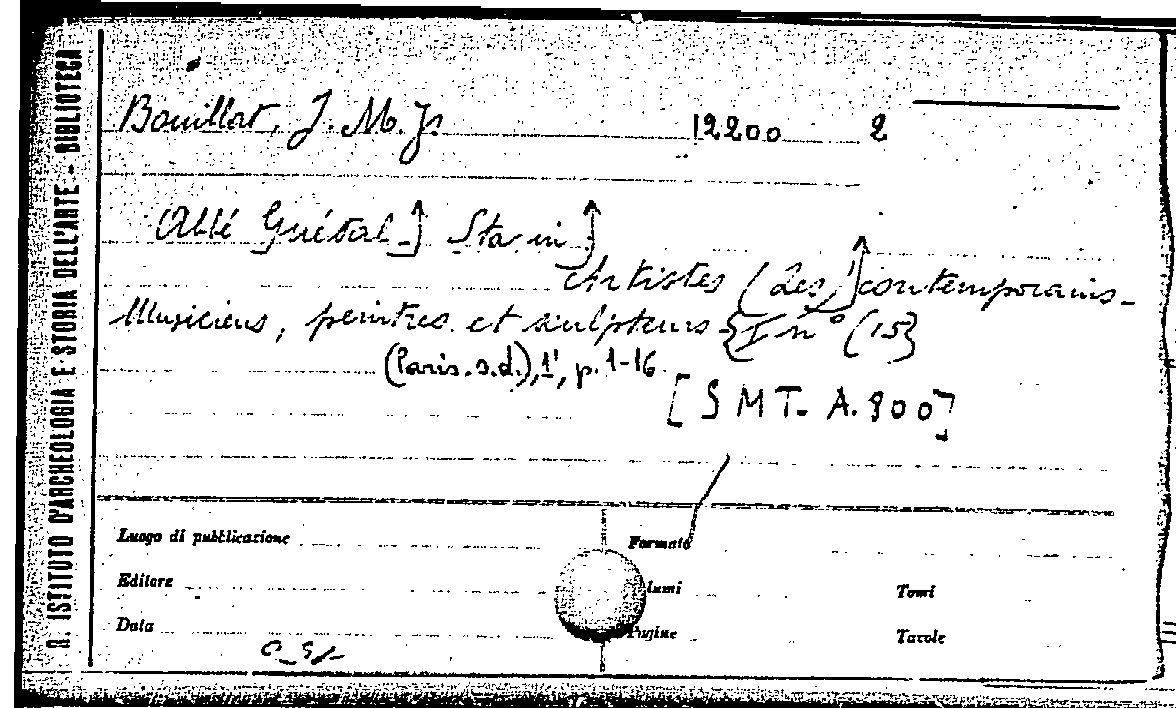 R. ISTITUTO D'ARCHEOLOGIA E STORIA DELL'ARTE - BIBLIOTECA
Bouillat, J. M. J. 12200 2
Abbé Guétal
Artistes (Les) contemporains -
Musiciens, peintres et sculpteurs n° (15)
(Paris. s.d.), 1', p. 1-16.
[S M T. A. 900]
Luogo di pubblicazione Formato
Editore lumi Tomi
Data Pagine Tavole